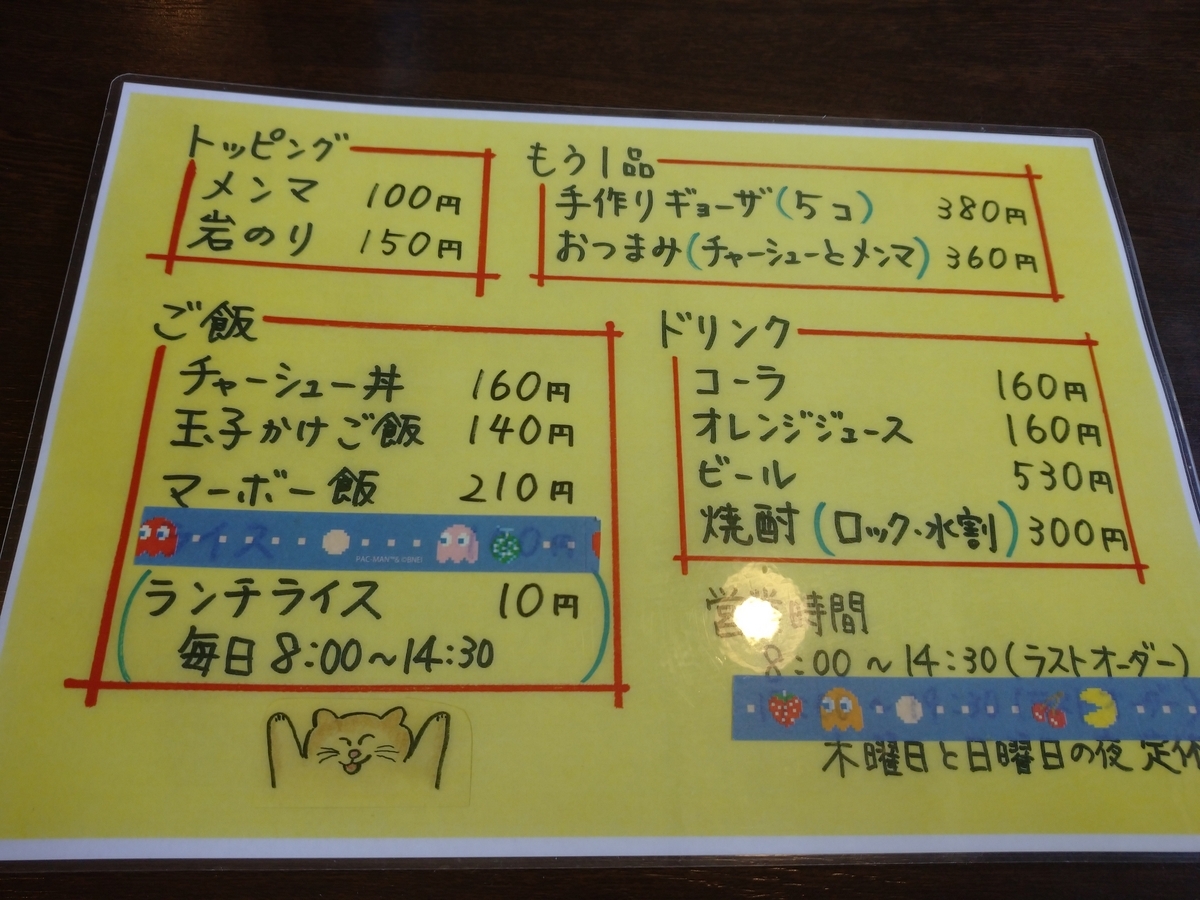 トッピング
メンマ 100円
岩のり 150円
もう1品
手作りギョーザ(5コ) 380円
おつまみ(チャーシューとメンマ) 360円
ご飯
チャーシュー丼 160円
玉子かけご飯 140円
マーボー飯 210円
ライス
PAC-MAN™& ©BNEI
(ランチライス 10円
毎日 8:00~14:30)
ドリンク
コーラ 160円
オレンジジュース 160円
ビール 530円
焼酎(ロック・水割) 300円
営業時間
8:00~14:30(ラストオーダー)
木曜日と日曜日の夜 定休